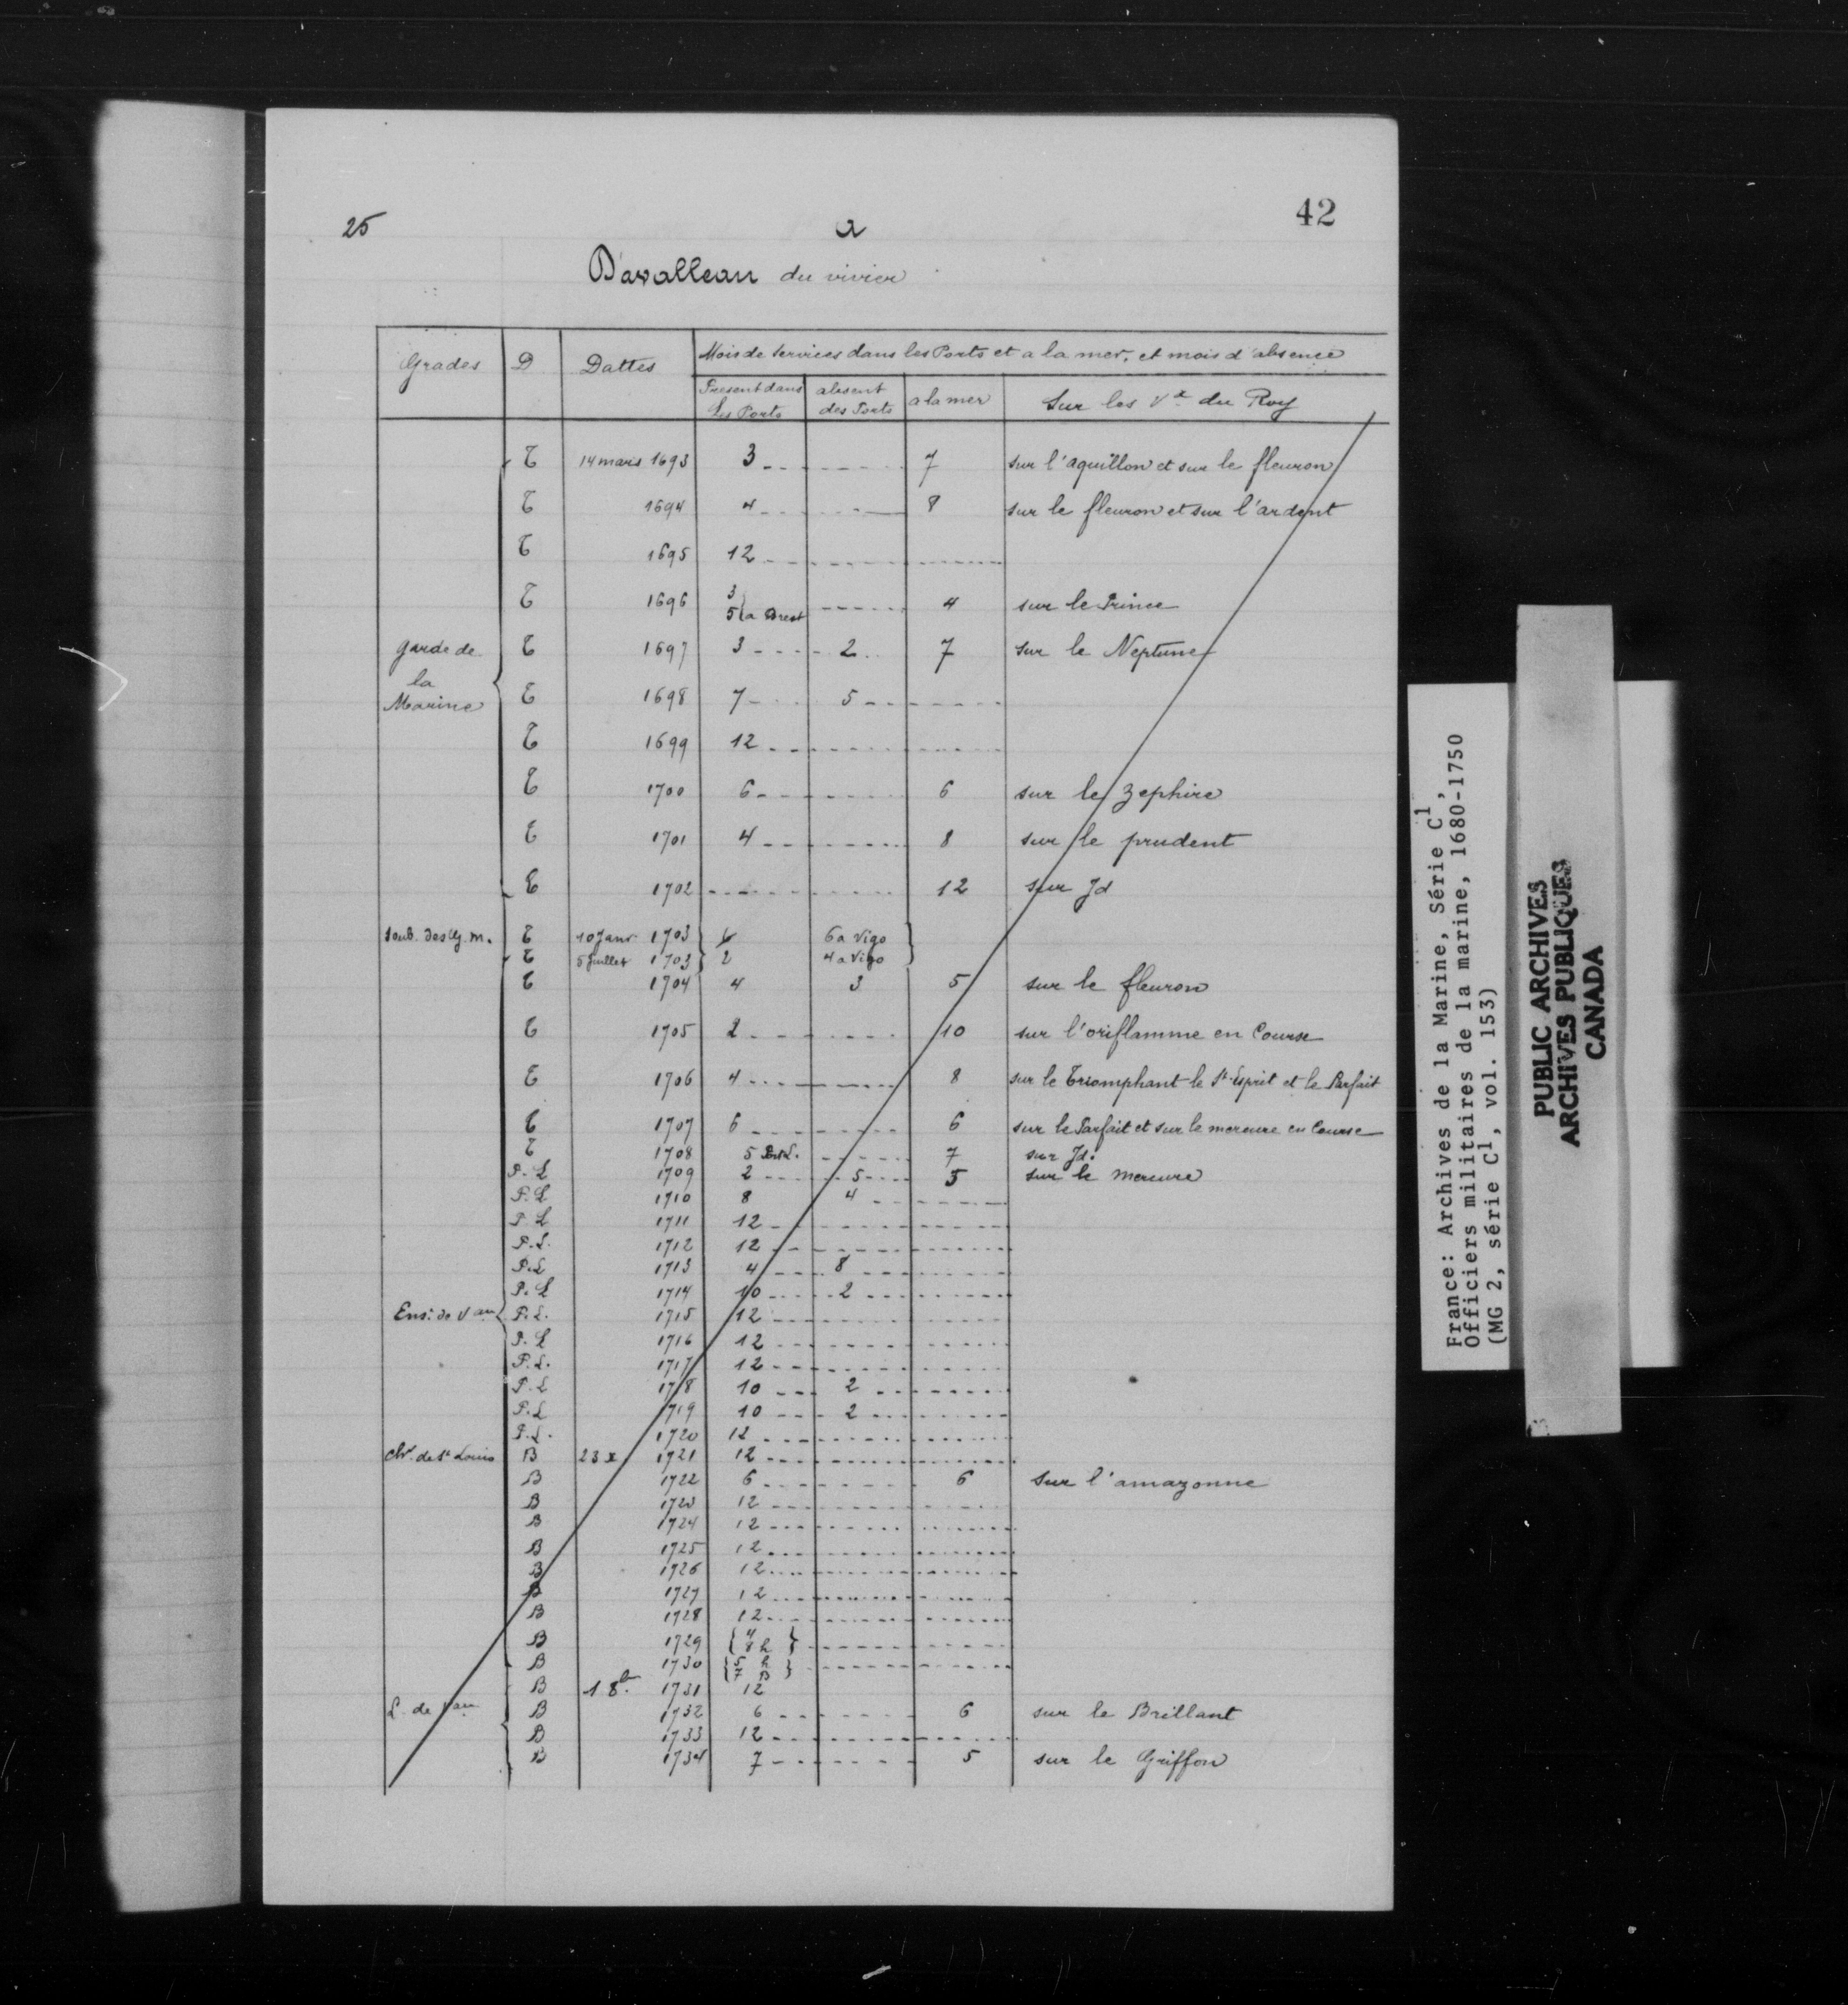 25 a 42
Davalleau du vivier
Grades D Dattes Mois de Services dans les Ports et a la mer, et mois d'absence
Present dans les Ports absent des Ports a la mer Sur les Vx du Roy
T 14 mars 1693 3 7 sur l'aquillon et sur le fleuron
T 1694 4 8 sur le fleuron et sur l'ardent
T 1695 12
T 1696 3 5 a Brest 4 sur le Prince
garde de la Marine T 1697 3 2 7 sur le Neptune
T 1698 7 5
T 1699 12
T 1700 6 6 sur le zephire
T 1701 4 8 sur le prudent
T 1702 12 sur Jd
soub. des g. m. T 10 Janv 1703 6 6 a Vigo
T 5 Juillet 1703 2 4 a Vigo
T 1704 4 3 5 sur le fleuron
T 1705 2 10 sur l'oriflamme en Course
T 1706 4 8 sur le Triomphant le St Esprit et le Parfait
T 1707 6 6 sur le Parfait et sur le mercure en Course
T 1708 5 7 sur Jd.
P. L 1709 2 5 5 sur le mercure
P. L 1710 8 4
P. L 1711 12
P. L. 1712 12
P. L 1713 4 8
P. L 1714 10 2
Ens. de Vau P. L. 1715 12
P. L 1716 12
P. L. 1717 12
P. L 1718 10 2
P. L 1719 10 2
P. L. 1720 12
chr. de St Louis B 23 x 1721 12
B 1722 6 6 sur l'amazonne
B 1723 12
B 1724 12
B 1725 12
B 1726 12
B 1727 12
B 1728 12
B 1729 4 8 h
B 1730 5 h 7 B
B 1 8b. 1731 12
L. de Vau B 1732 6 6 sur le Brillant
B 1733 12
B 1734 7 5 sur le Griffon
France: Archives de la Marine, Série C1,
Officiers militaires de la marine, 1680-1750
(MG 2, série C1, vol. 153)
PUBLIC ARCHIVES
ARCHIVES PUBLIQUES
CANADA